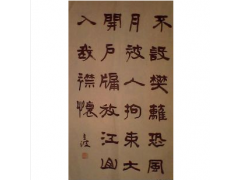 不設樊籬恐風
月被人拘束大
開戶牖放江山
入我襟懷